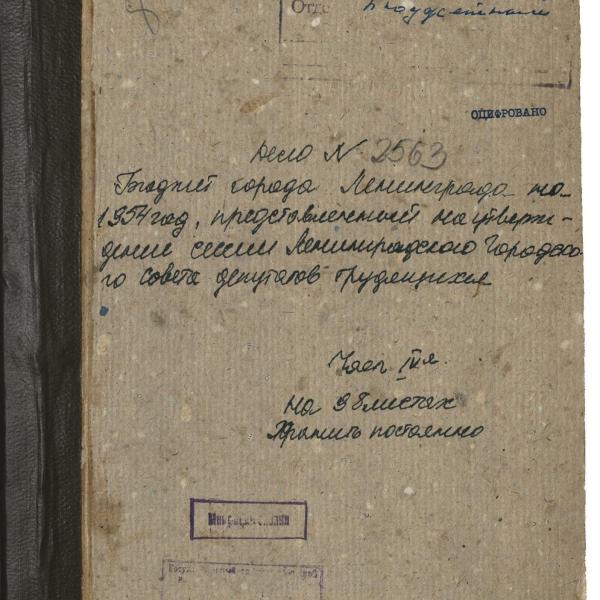 Отде
бюджетный
ОЦИФРОВАНО
Дело N 2563
Бюджет города Ленинграда на
1954 год, представленный на утверж-
дение сессии Ленинградского Городско-
го совета депутатов трудящихся
Часть IIIя.
На 98 листах
Хранить постоянно